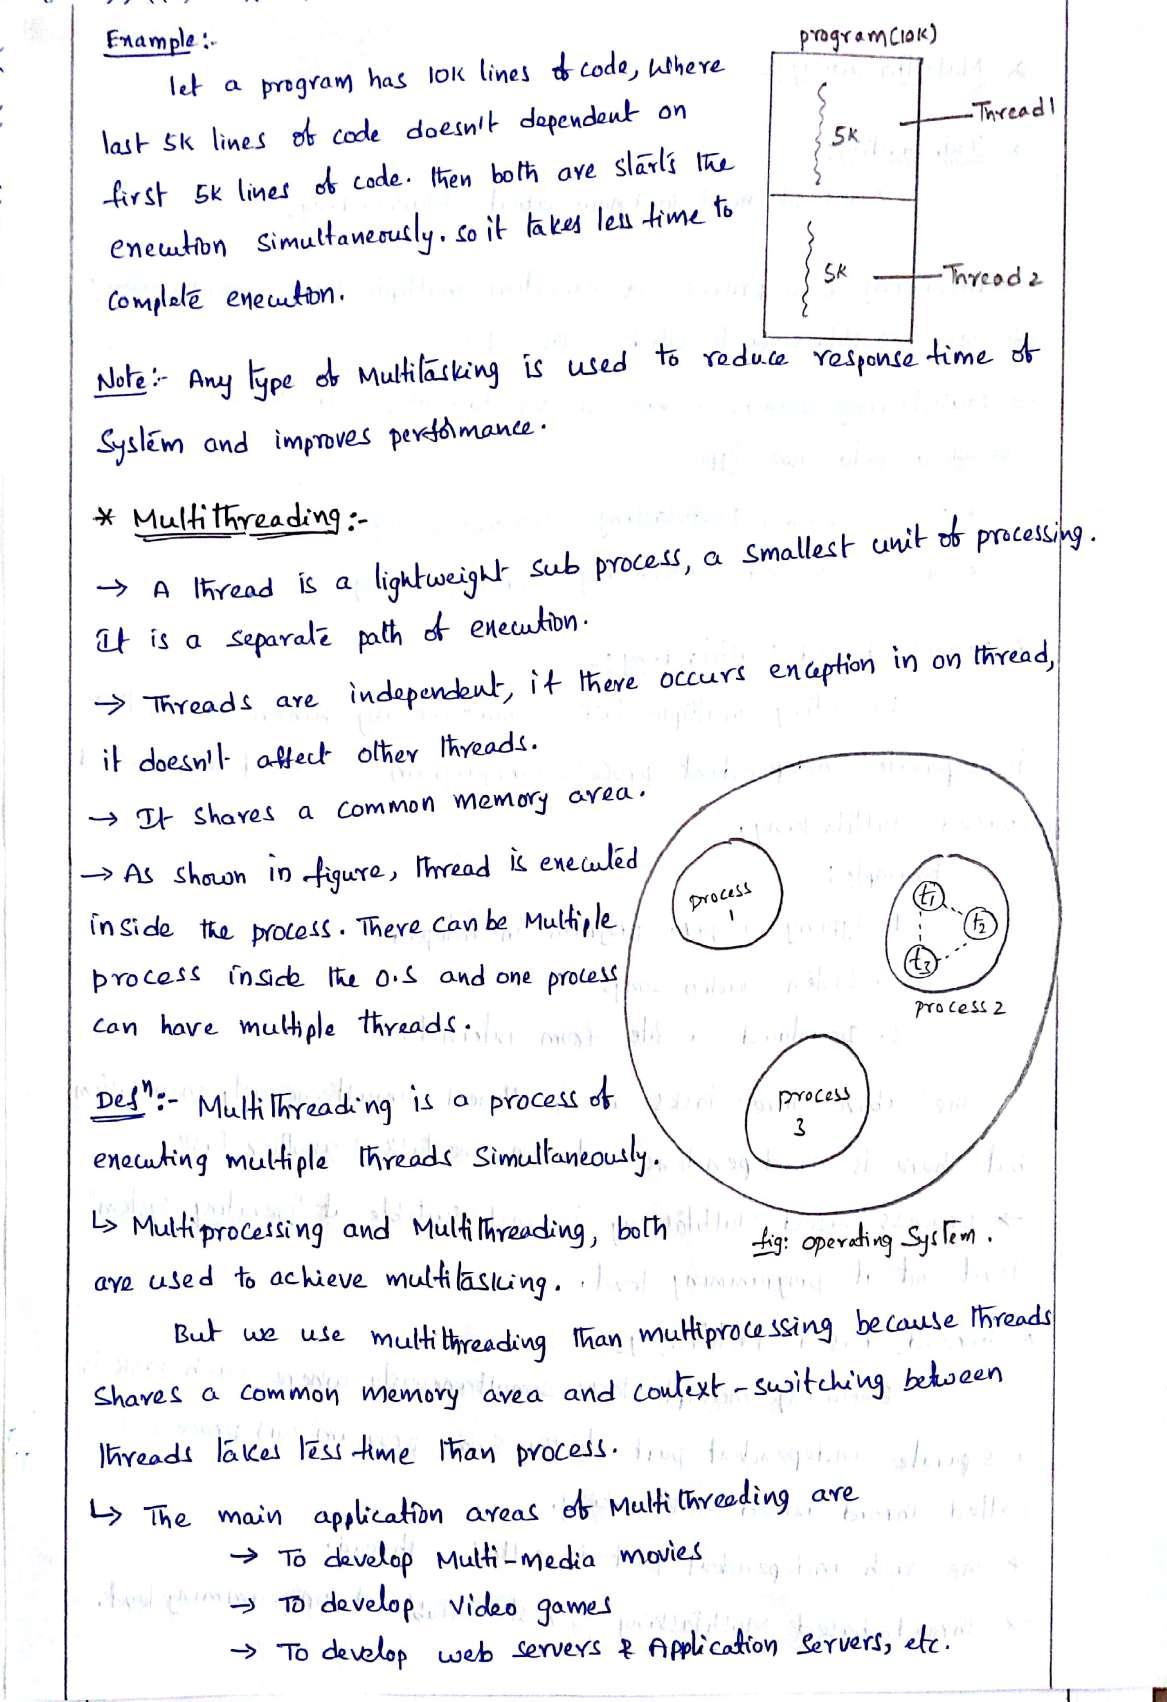 Example:-
let a program has 10K lines of code, where
last 5K lines of code doesn't dependent on
first 5K lines of code. then both are starts the
execution simultaneously. so it takes less time to
complete execution.
program(10K)
5K
Thread 1
5K
Thread 2
Note:- Any type of Multitasking is used to reduce response time of
System and improves performance.
* Multithreading:-
→ A thread is a lightweight sub process, a smallest unit of processing.
It is a separate path of execution.
→ Threads are independent, if there occurs exception in on thread,
it doesn't affect other threads.
→ It shares a common memory area.
→ As shown in figure, thread is executed
inside the process. There can be Multiple
process inside the O.S and one process
can have multiple threads.
process
1
t1
t2
t3
process 2
process
3
fig: operating System.
Defn:- MultiThreading is a process of
executing multiple threads simultaneously.
↳ Multiprocessing and MultiThreading, both
are used to achieve multitasking.
But we use multithreading than multiprocessing because threads
shares a common memory area and context-switching between
threads takes less time than process.
↳ The main application areas of Multithreading are
→ To develop Multi-media movies
→ To develop video games
→ To develop web servers & Application Servers, etc.